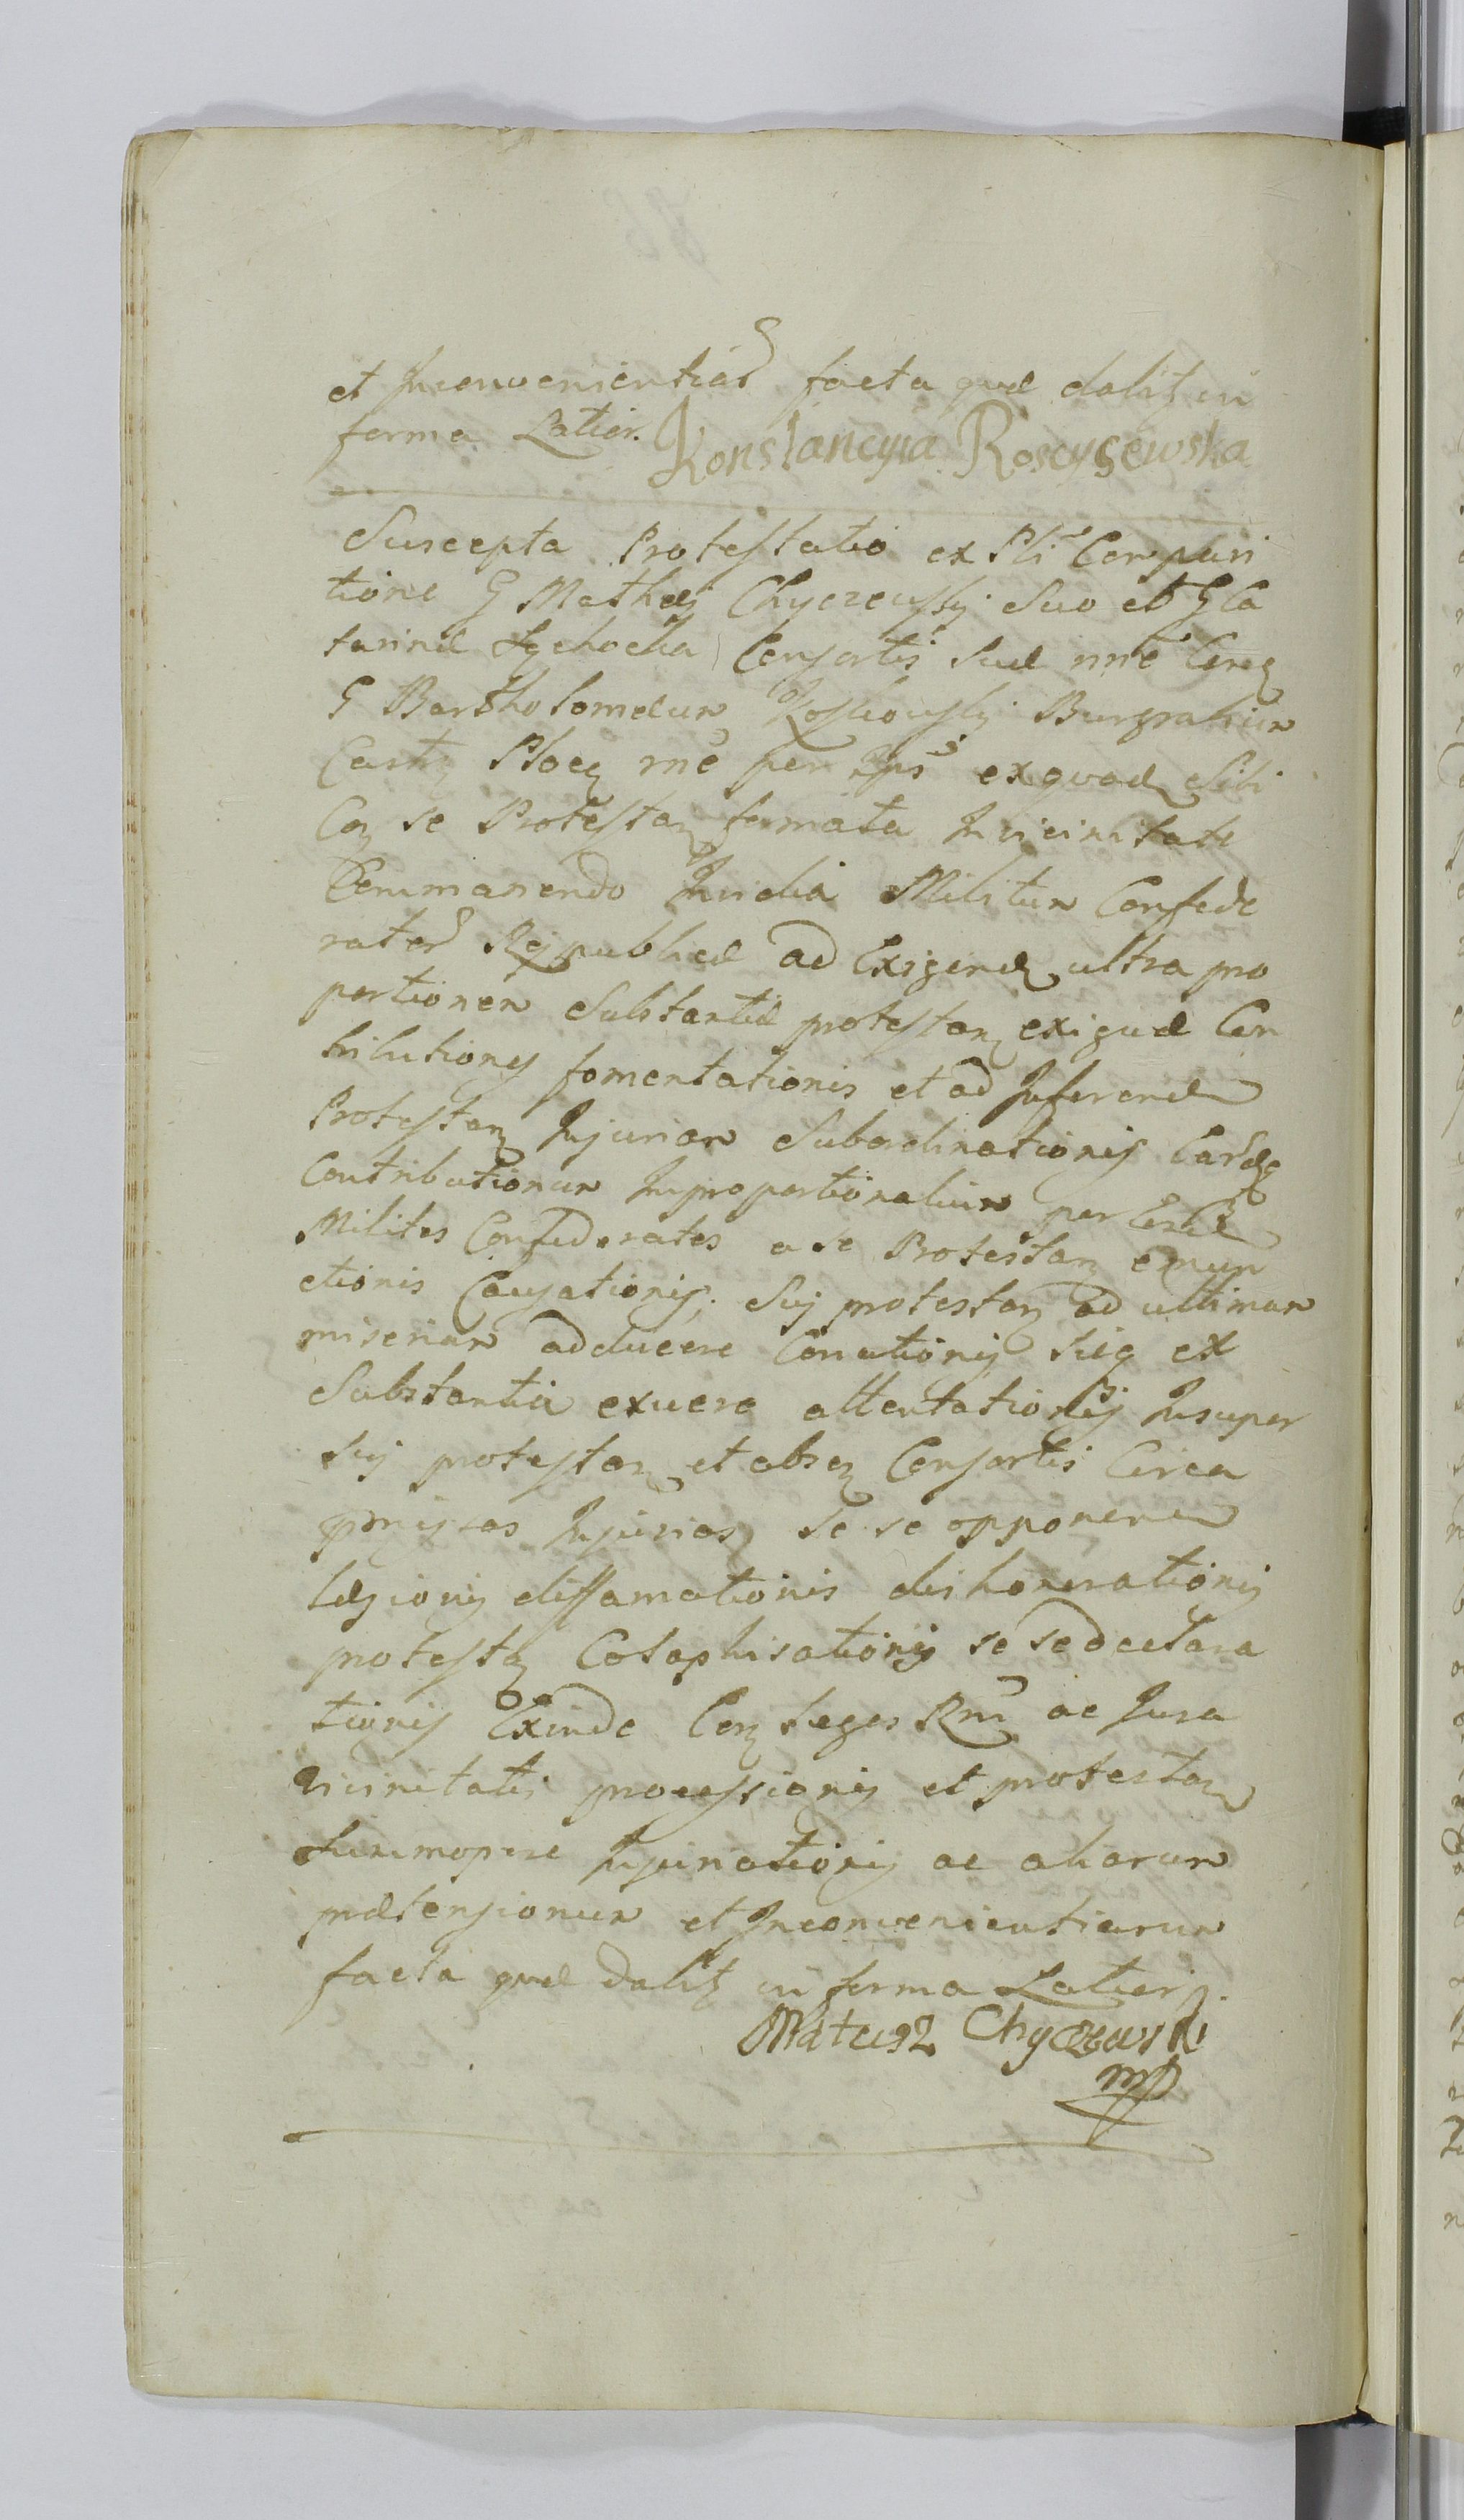 et Inconvenientiar facta quæ dabit in
forma Latior. Konstancyia Roscysewska
Suscepta Protestatio ex Pli Compari
tione G Mathæi Chyczewsky Suo et G Ca
tarinæ Lychocka Consortis Suæ nne Con
G Bartholomæum Kossowsky Burgrabium
Castr Ploc me per Ips ex quod Sibi
Con se Protestan formata In vicinitate
Commanendo Invidia Militum Confede
rator Reipublicæ ad Exigend ultra pro
portionem Substantiæ protestan exiguæ Con
tributionis fomentationis et ad Inferend
Protestan Injuriam Subordinationis
Contributionum Improportionalium per
Milites Confederatos a se Protestan emun
ctionis Causationis, Sui protestan ad ultimam
miseriam adducere Conationis Suis ex
Substantia exuere attentationis Insuper
Sui protestan et absen Consortis Circa
præmissas Injurias se se opponen
læsionis diffamationis dishonorationis
protestan Colaphisationis se se declara
tionis Exinde Con Leges Rni ac Jura
vicinitatis processionis et protestan
Summopere Injuriationis ac aliarum
prætensionum et Inconvenientiarum
facta quæ dabit in forma Latiori.
Mateusz Chyczewski
mp